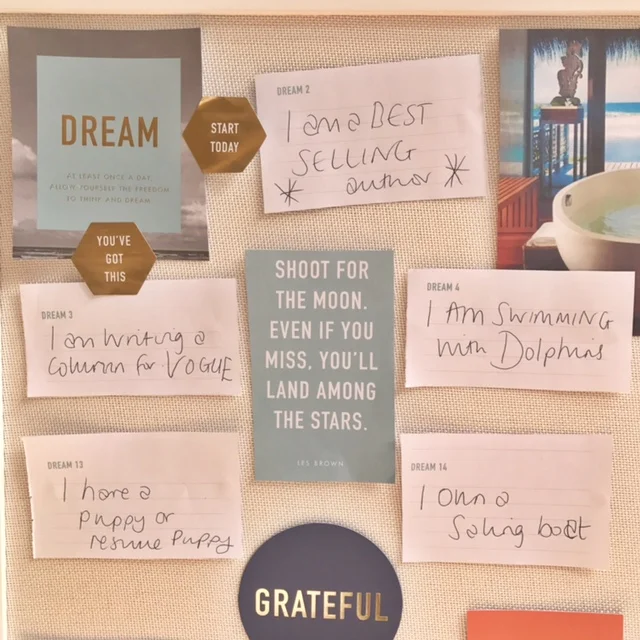 DREAM
AT LEAST ONCE A DAY,
ALLOW YOURSELF THE FREEDOM
TO THINK AND DREAM
START
TODAY
DREAM 2
I am a BEST
SELLING
author
YOU'VE
GOT
THIS
DREAM 3
I am writing a
column for VOGUE
SHOOT FOR
THE MOON.
EVEN IF YOU
MISS, YOU'LL
LAND AMONG
THE STARS.
LES BROWN
DREAM 4
I AM SWIMMING
with Dolphins
DREAM 13
I have a
puppy or
rescue puppy
DREAM 14
I own a
Sailing boat
GRATEFUL